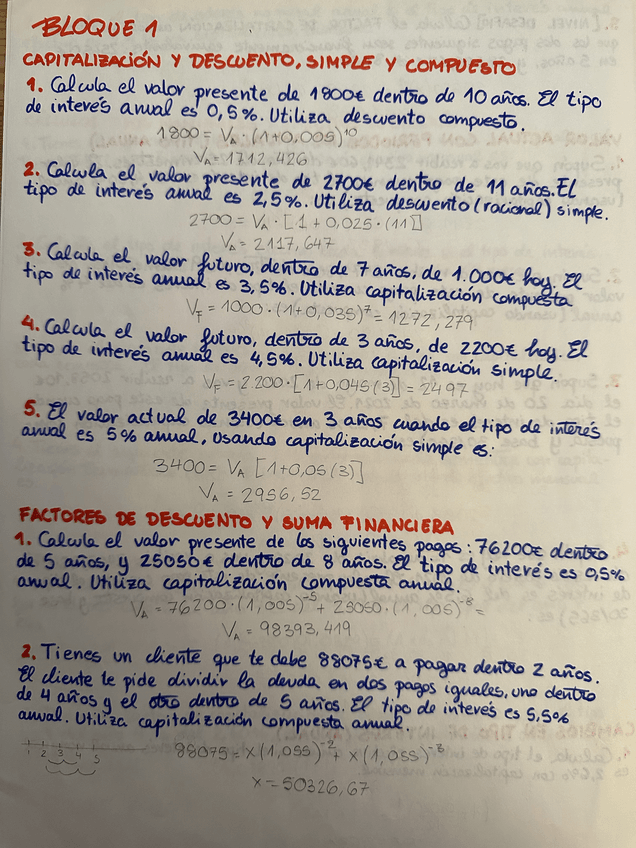 BLOQUE 1
CAPITALIZACIÓN Y DESCUENTO, SIMPLE Y COMPUESTO
1. Calcula el valor presente de 1800€ dentro de 10 años. El tipo
de interés anual es 0,5%. Utiliza descuento compuesto.
1800 = VA · (1+0,005)^10
VA = 1712,426
2. Calcula el valor presente de 2700€ dentro de 11 años. El
tipo de interés anual es 2,5%. Utiliza descuento (racional) simple.
2700 = VA · [1 + 0,025 · (11)]
VA = 2117,647
3. Calcula el valor futuro, dentro de 7 años, de 1.000€ hoy. El
tipo de interés anual es 3,5%. Utiliza capitalización compuesta.
VF = 1000 · (1+0,035)^7 = 1272,279
4. Calcula el valor futuro, dentro de 3 años, de 2200€ hoy. El
tipo de interés anual es 4,5%. Utiliza capitalización simple.
VF = 2.200 · [1+0,045(3)] = 2497
5. El valor actual de 3400€ en 3 años cuando el tipo de interés
anual es 5% anual, usando capitalización simple es:
3400 = VA [1+0,05(3)]
VA = 2956,52
FACTORES DE DESCUENTO Y SUMA FINANCIERA
1. Calcula el valor presente de los siguientes pagos: 76200€ dentro
de 5 años, y 25050€ dentro de 8 años. El tipo de interés es 0,5%
anual. Utiliza capitalización compuesta anual.
VA = 76200 · (1,005)^-5 + 25050 · (1,005)^-8 =
VA = 98393,419
2. Tienes un cliente que te debe 88075€ a pagar dentro 2 años.
El cliente te pide dividir la deuda en dos pagos iguales, uno dentro
de 4 años y el otro dentro de 5 años. El tipo de interés es 5,5%
anual. Utiliza capitalización compuesta anual.
1 2 3 4 5
88075 = x(1,055)^-2 + x(1,055)^-3
x = 50326,67